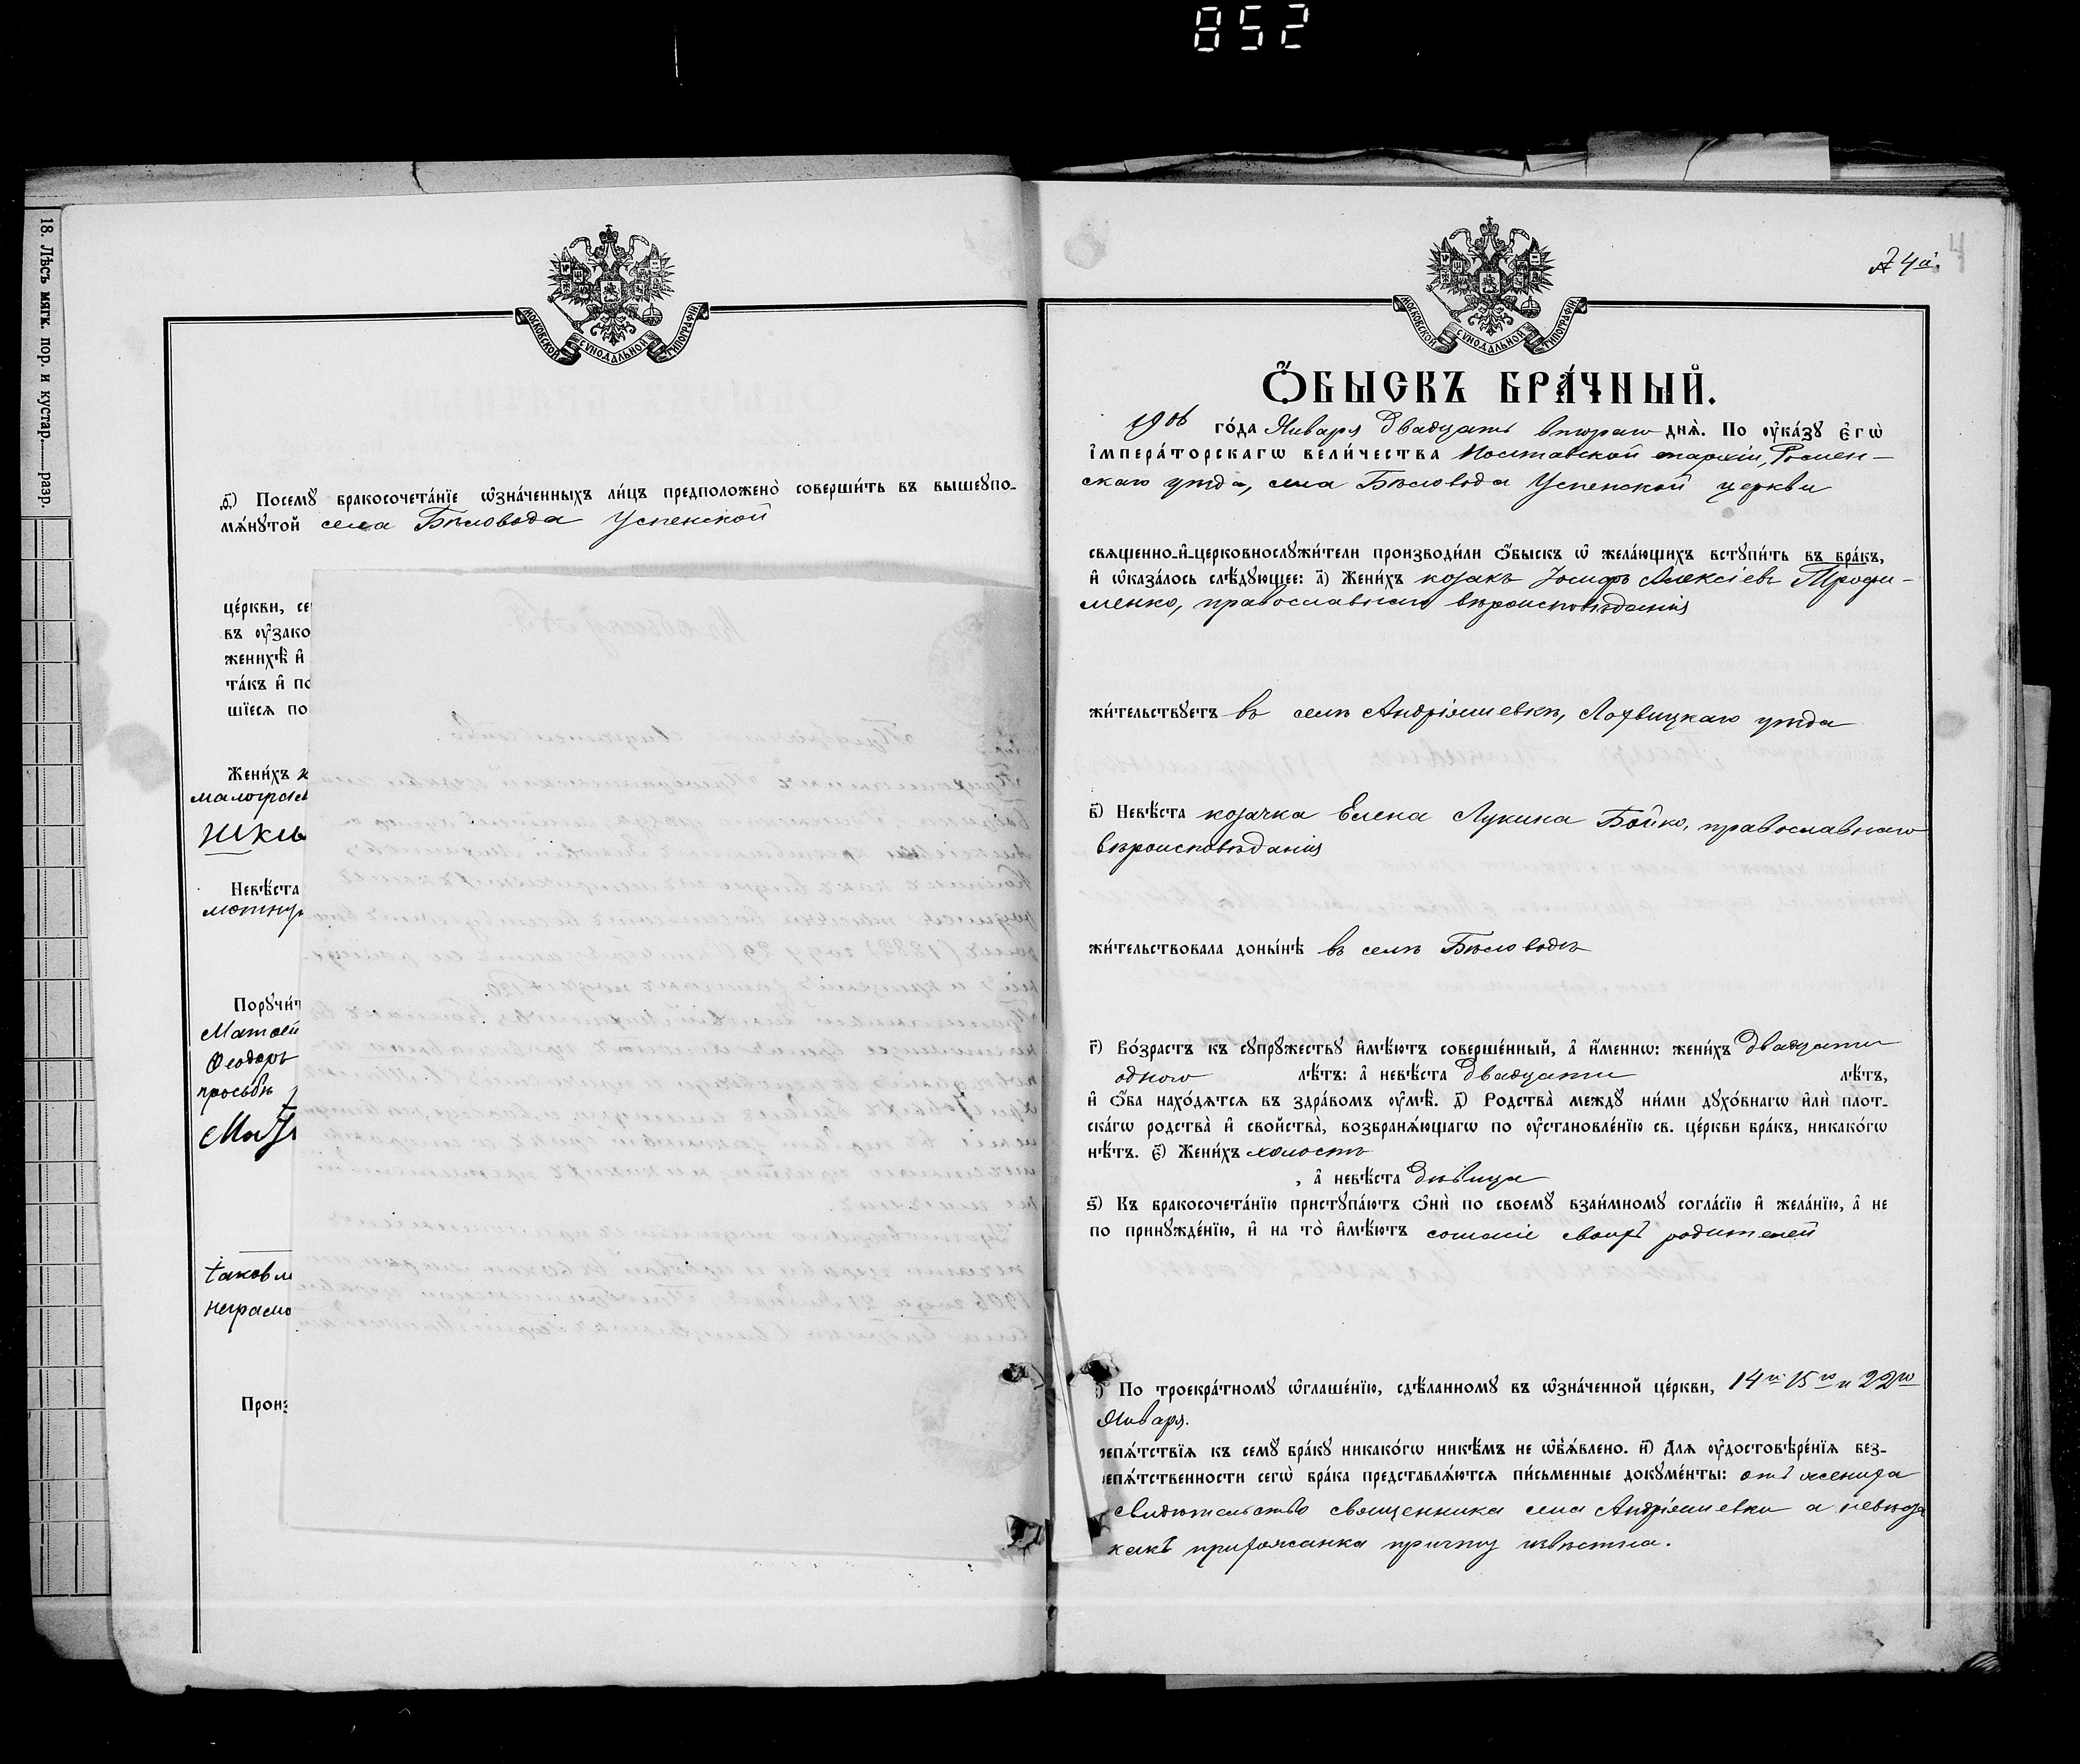 852
18. Лѣсъ мягк. пор. и кустар. разр.
МОСКОВСКОЙ СѴНОДАЛЬНОЙ ТИПОГРАФІИ
д҃) Посемꙋ бракосочета́нїе ѡ҆зна́ченныхъ ли́цъ предположено̀ соверши́ть въ вышеупо-
мѧ́нꙋтой села Бѣловода Успенской
це́ркви, се
въ ᲂу҆зако
женихѣ̀ и҆
та́къ и҆ по
шїесѧ по
Жени́хъ к
малограм
Шкив
Невѣ́ста
мѣтну
Порꙋчи́т
Матѳей
Ѳеодоръ
просьбѣ
таковм
неграмо
Произ
МОСКОВСКОЙ СѴНОДАЛЬНОЙ ТИПОГРАФІИ
№ 4й.
4
Ѻ҆́БЫСКЪ БРА́ЧНЫЙ.
1906 го́да Января двадцать втораго днѧ̀. По ᲂу҆ка́зꙋ є҆гѡ̀
і҆мпера́торскагѡ вели́чества Полтавской епархіи, Ромен-
скаго уѣзда, села Бѣловода Успенской церкви
свѧщенно-и҆-церковнослꙋжи́тели производи́ли ѻ҆́быскъ ѡ҆ жела́ющихъ встꙋпи́ть въ бра́къ,
и҆ ѡ҆каза́лось слѣ́дꙋющее: а҃) Жени́хъ козакъ Іосифъ Алексіевъ Трофи-
менко, православнаго вѣроисповѣданія
жи́тельствꙋетъ въ селѣ Андріяшевкѣ, Лохвицкаго уѣзда
в҃) Невѣ́ста козачка Елена Лукина Бойко, православнаго
вѣроисповѣданія
жи́тельствовала доны́нѣ въ селѣ Бѣловодѣ
г҃) Во́зрастъ къ сꙋпрꙋжествꙋ и҆мѣ́ютъ соверше́нный, а҆ и҆́меннѡ: жени́хъ двадцати
одного лѣ́тъ: а҆ невѣ́ста двадцати лѣ́тъ,
и҆ ѻ҆́ба нахо́дѧтсѧ въ здра́вомъ ᲂу҆мѣ̀. д҃) Родства̀ междꙋ ни́ми дꙋхо́внагѡ и҆лѝ плот-
ска́гѡ родства̀ и҆ свойства̀, возбранѧ́ющагѡ по ᲂу҆становле́нїю св. це́ркви бра́къ, никако́гѡ
нѣ́тъ. є҃) Жени́хъ холостъ
, а҆ невѣ́ста дѣвица
ѕ҃) Къ бракосочета́нїю пристꙋпа́ютъ ѻ҆нѝ по своемꙋ̀ взаи́мномꙋ согла́сїю и҆ жела́нїю, а҆ не
по принꙋжде́нїю, и҆ на то̀ и҆мѣ́ютъ согласіе своихъ родителей
) По троекра́тномꙋ ѡ҆глаше́нїю, сдѣ́ланномꙋ въ ѡ҆зна́ченной це́ркви, 14го 15го и 22го
Января.
репѧ́тствїѧ къ семꙋ̀ бра́кꙋ никако́гѡ никѣ́мъ не ѡ҆б̾ѧ́влено. и҃) Длѧ ᲂу҆достовѣре́нїѧ без-
епѧ́тственности сегѡ̀ бра́ка представлѧ́ютсѧ пи́сьменные докꙋме́нты: отъ жениха
свидѣтельство священника села Андріяшевки а невѣста
какъ прихожанка причту извѣстна.